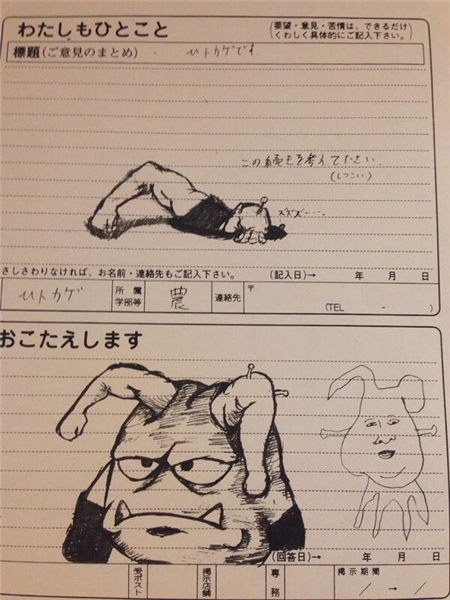 わたしもひとこと
(要望・意見・苦情は、できるだけ
くわしく具体的にご記入下さい。)
標題(ご意見のまとめ) ヒトカゲです
この続きを考えて下さい
(しつこい)
ズズズ…
さしさわりなければ、お名前・連絡先もご記入下さい。 (記入日)→ 年 月 日
ヒトカゲ 所属学部等 農 連絡先 〒
(TEL - )
おこたえします
(回答日)→ 年 月 日
受ポスト 掲示店舗 専務 掲示期間
/ → /